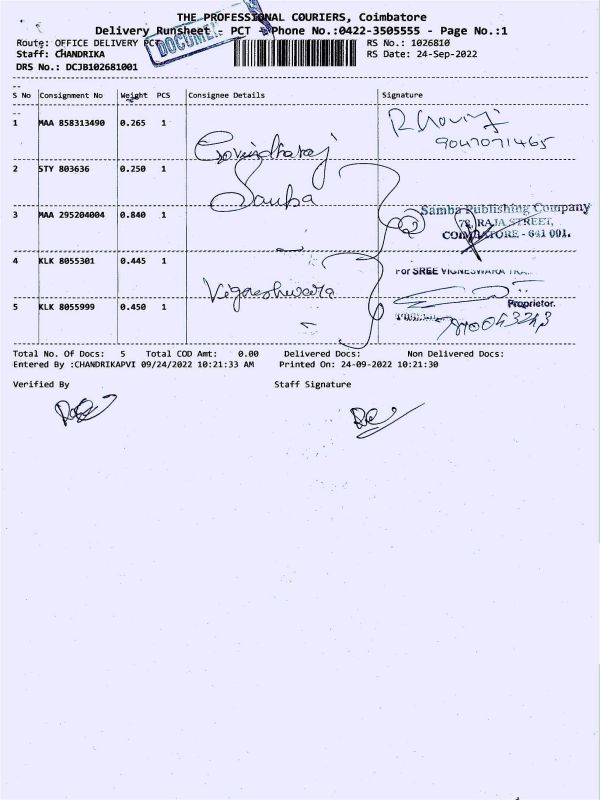 THE PROFESSIONAL COURIERS, Coimbatore
Delivery Runsheet - PCT - Phone No.:0422-3505555 - Page No.:1
Route: OFFICE DELIVERY PCT
RS No.: 1026810
Staff: CHANDRIKA
RS Date: 24-Sep-2022
DRS No.: DCJB102681001
S No Consignment No Weight PCS Consignee Details Signature
1 MAA 858313490 0.265 1
9047071465
Govindharaj
2 STY 803636 0.250 1
Samba
3 MAA 295204004 0.840 1
Samba Publishing Company
78, RAJA STREET,
COIMBATORE - 641 001.
4 KLK 8055301 0.445 1
For SREE VIGNESWARA
Vigneshwara
5 KLK 8055999 0.450 1
Proprietor.
Total No. Of Docs: 5 Total COD Amt: 0.00 Delivered Docs: Non Delivered Docs:
Entered By :CHANDRIKAPVI 09/24/2022 10:21:33 AM Printed On: 24-09-2022 10:21:30
Verified By Staff Signature